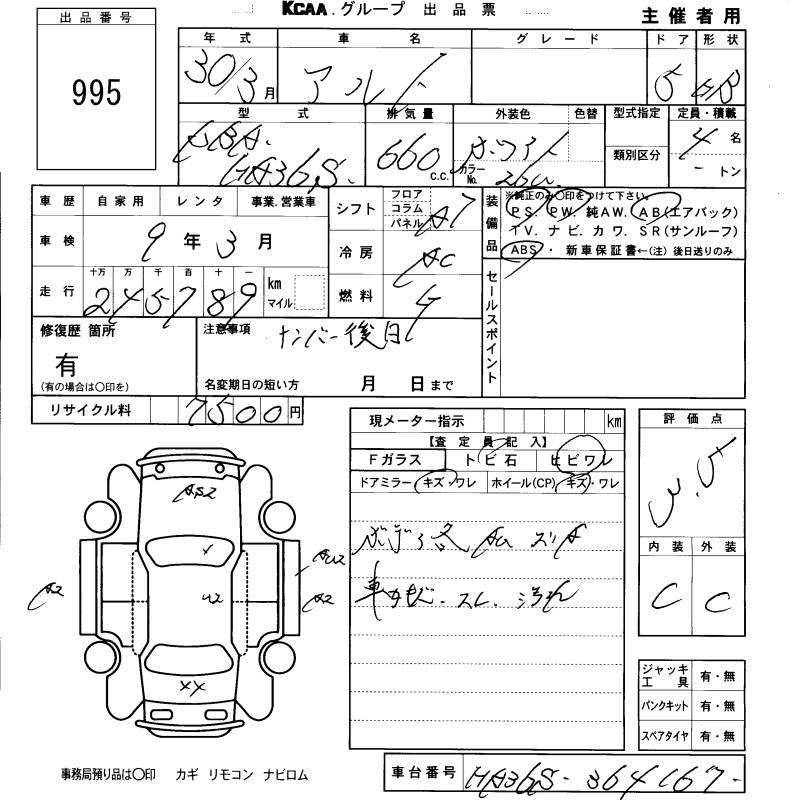 KCAA.グループ 出品票
主催者用
出品番号
995
年式 車名 グレード ドア 形状
30/3月 アルト 5 HB
型式 排気量 外装色 色替 型式指定 定員・積載
DBA- HA36S 660 c.c. ホワイト カラーNo. 26U 類別区分 4名
－トン
車歴 自家用 レンタ 事業.営業車
車検 9年3月
走行 十万 万 千 百 十 一
245789 km マイル
シフト フロア コラム パネル A7
冷房 AC
燃料 G
装備品
※純正のみ〇印をつけて下さい。
PS. PW. 純AW. AB(エアバック)
TV. ナビ. カワ. SR(サンルーフ)
ABS・ 新車保証書←(注) 後日送りのみ
セールスポイント
修復歴 箇所
有
(有の場合は〇印を)
注意事項 ナンバー後日
名変期日の短い方 月 日まで
リサイクル料 7500円
現メーター指示 km
【査定員記入】
Fガラス トビ石 ヒビワレ
ドアミラー キズ・ワレ ホイール(CP) キズ・ワレ
ボディ各AUスリA
車内コゲ・スレ.汚れ
評価点
3.5
内装 外装
C C
A2
U2
XX
A2
ジャッキ工具 有・無
パンクキット 有・無
スペアタイヤ 有・無
事務局預り品は〇印 カギ リモコン ナビロム
車台番号 HA36S-364167-